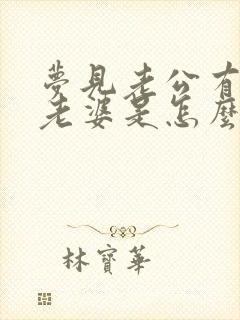 夢見老公有
老婆是怎麼
林寶華